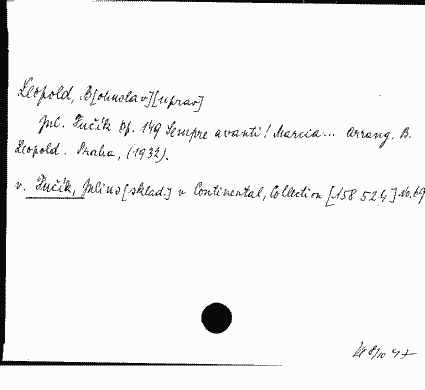 Leopold, B[ohuslav][uprav]
Jul. Fučík Op. 149 Sempre avanti! Marcia... Arrang. B.
Leopold. Praha, (1932).
v. Fučík, Julius [sklad.] v Continental, Collection [158 524] No. 69